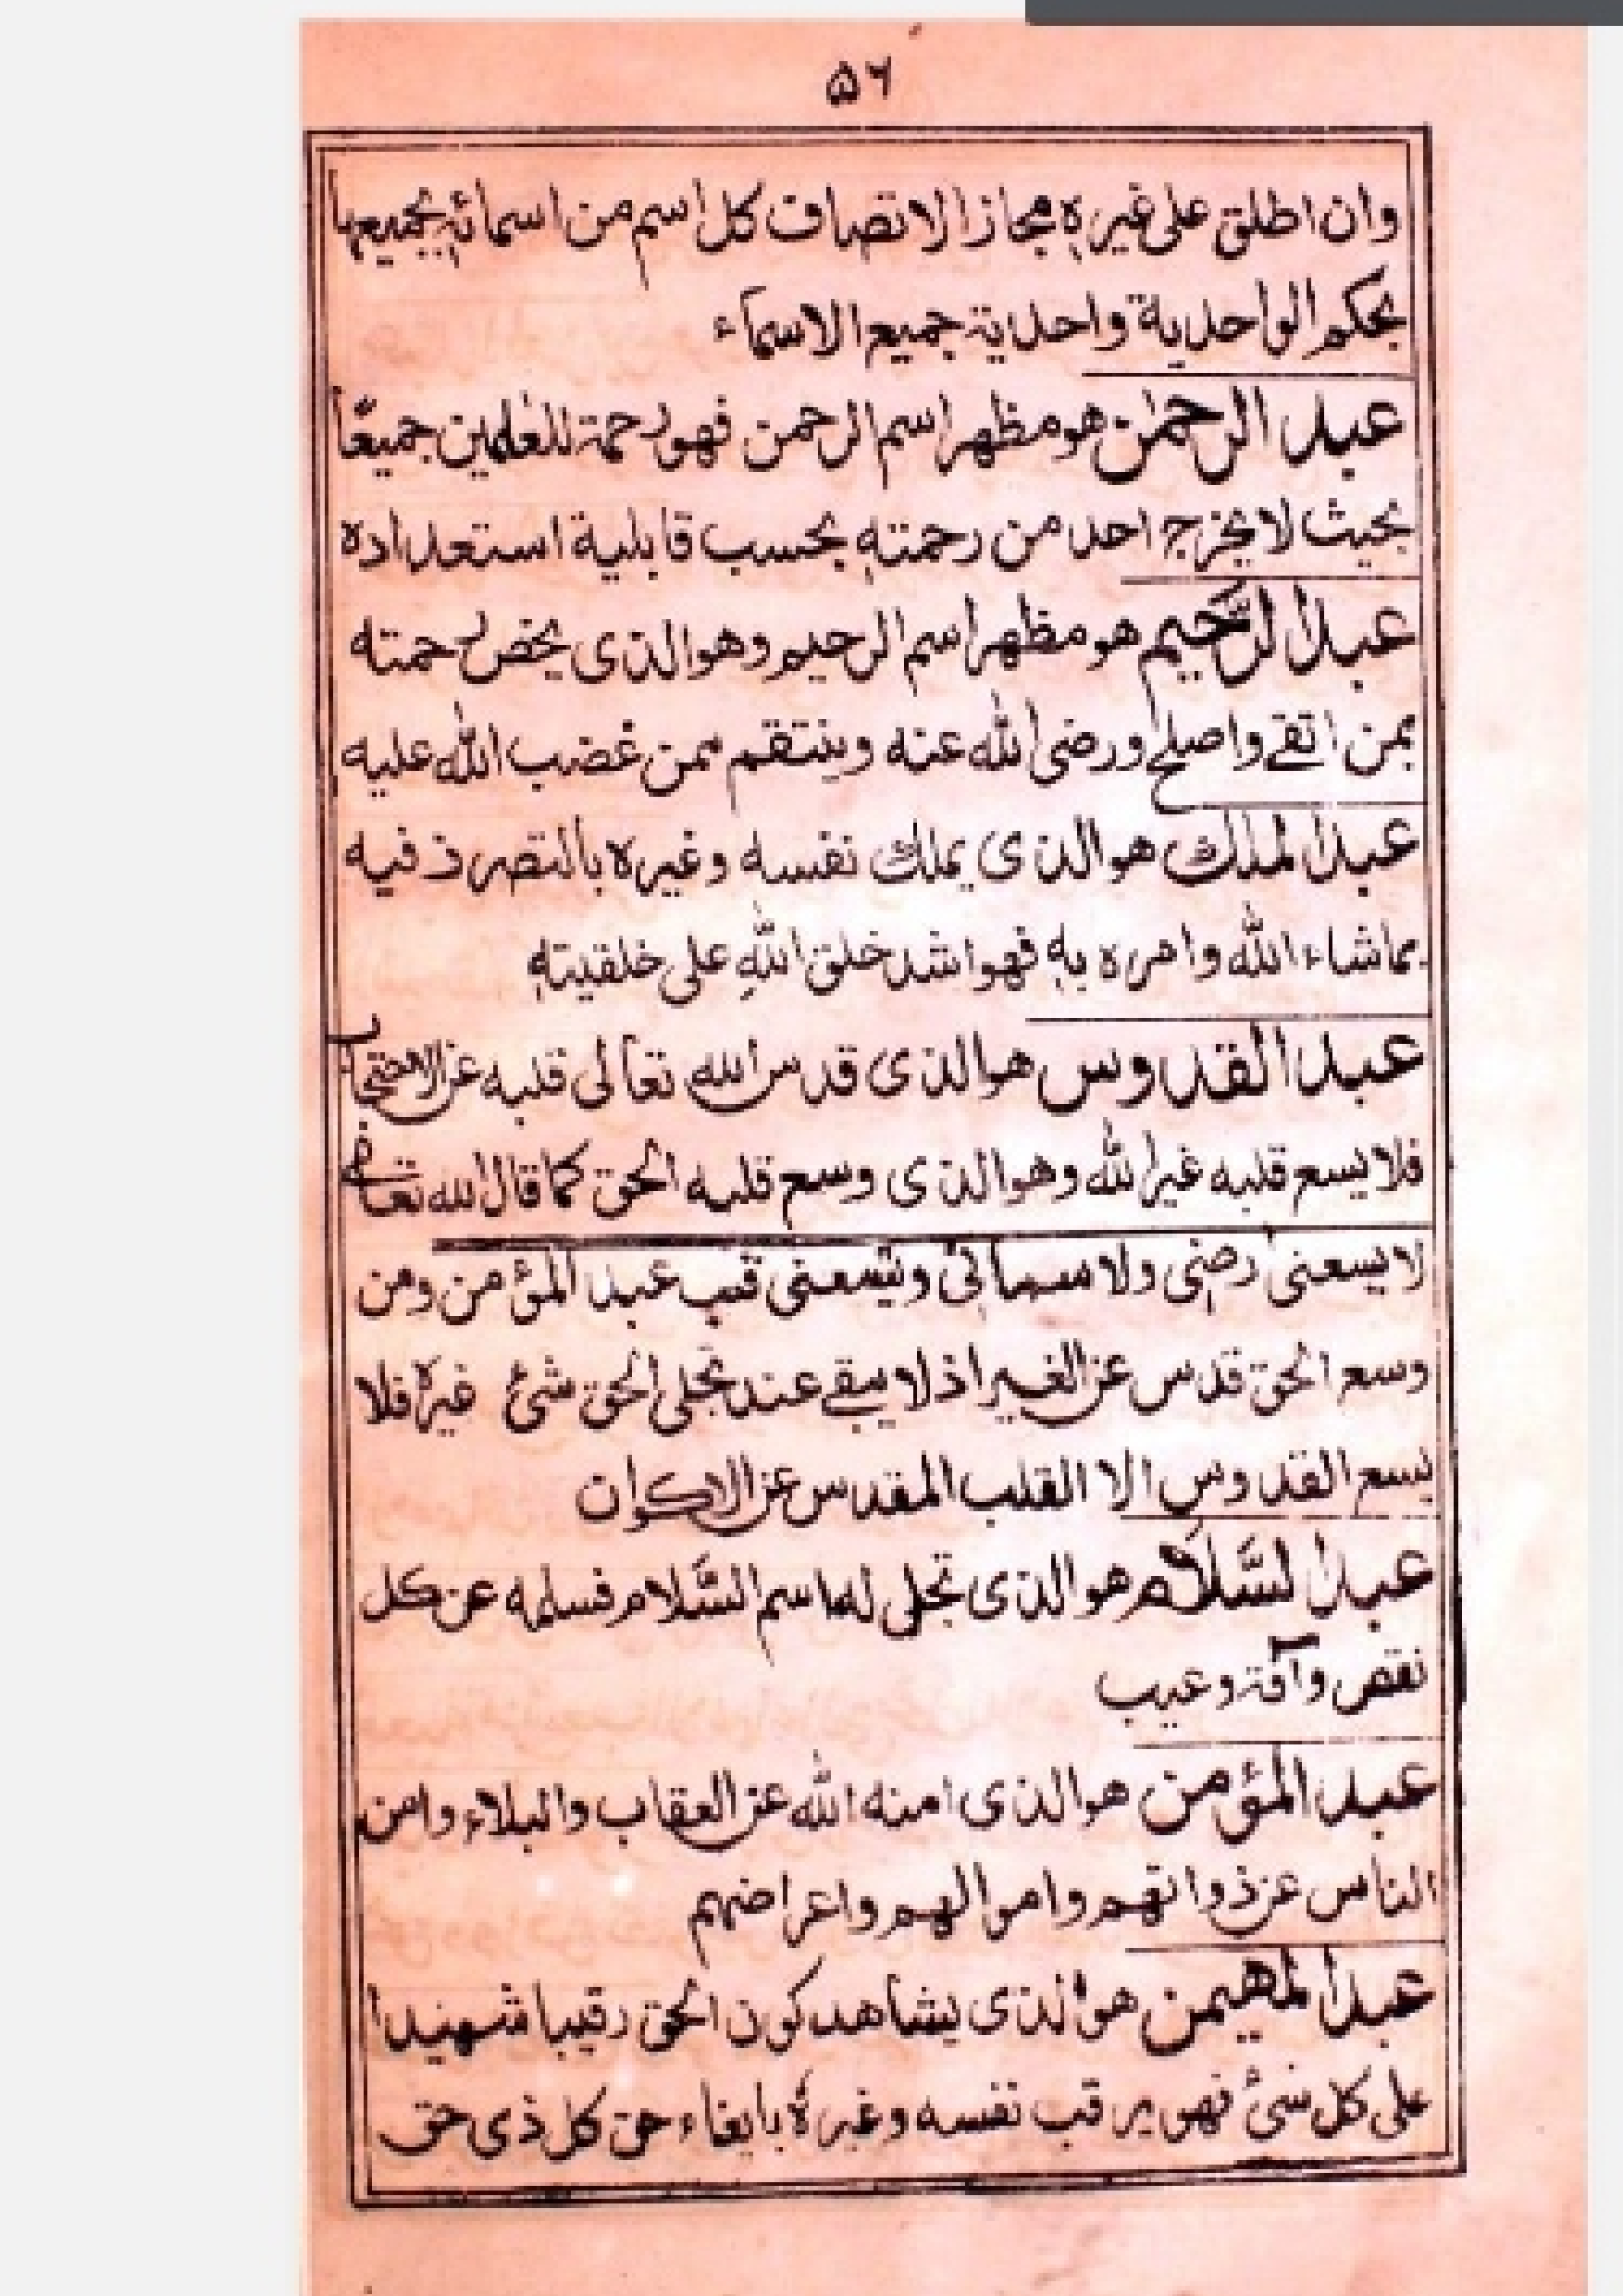 ۵۶
وان اطلق علی غیرہ مجازا لاتصاف کل اسم من اسمائہ بجمیعها
بحکم الواحدیة واحدیة جمیع الاسماء
عبد الرحمٰن هو مظهر اسم الرحمن فهو رحمة للعٰلمین جمیعًا
بحیث لا یخرج احد من رحمتہٖ بحسب قابلیة استعدادہ
عبد الرَّحیم هو مظهر اسم الرحیم وهو الذی یخص رحمته
بمن اتقے واصلح ورضی الله عنه وینتقم ممن غضب الله علیه
عبد الملك هو الذی یملك نفسه وغیرہ بالتصرف فیه
بماشاء الله وامرہ بہٖ فهو اشد خلق اللهِ علی خلقیتہٖ
عبد القدوس هو الذی قدس الله تعالی قلبه عن الاحتجاب
فلا یسع قلبه غیر الله وهو الذی وسع قلبه الحق کما قال الله تعالی
لا یسعنی ارضی ولا سمائی ویسعنی قلب عبد المؤمن ومن
وسع الحق قدس عن الغیر اذ لا یبقے عند تجلی الحق شئ غیرہ فلا
یسع القدوس الا القلب المقدس عن الاکوان
عبد السَّلام هو الذی تجلی له اسم السَّلام فسلمه عن کل
نقص وآفة وعیب
عبد المؤمن هو الذی امنه الله عن العقاب والبلاء وامن
الناس عن ذواتهم واموالهم واعراضهم
عبد المهیمن هو الذی یشاهد کون الحق رقیبا شهیدا
علی کل شئ فهو یرقب نفسه وغیرہ بایفاء حق کل ذی حق